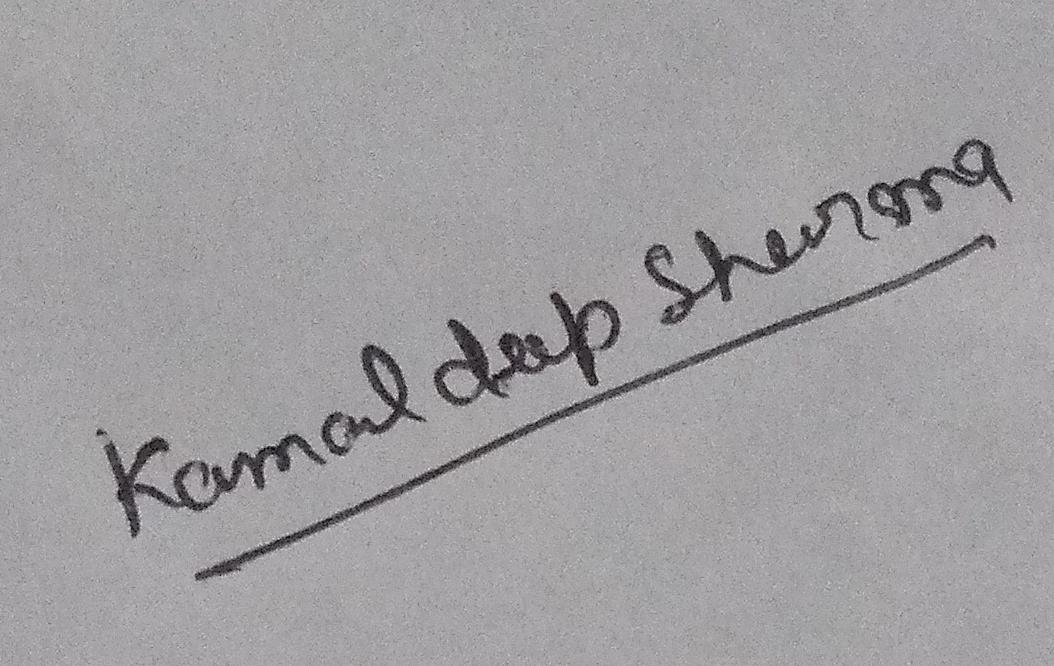 Kamaldeep Sharma